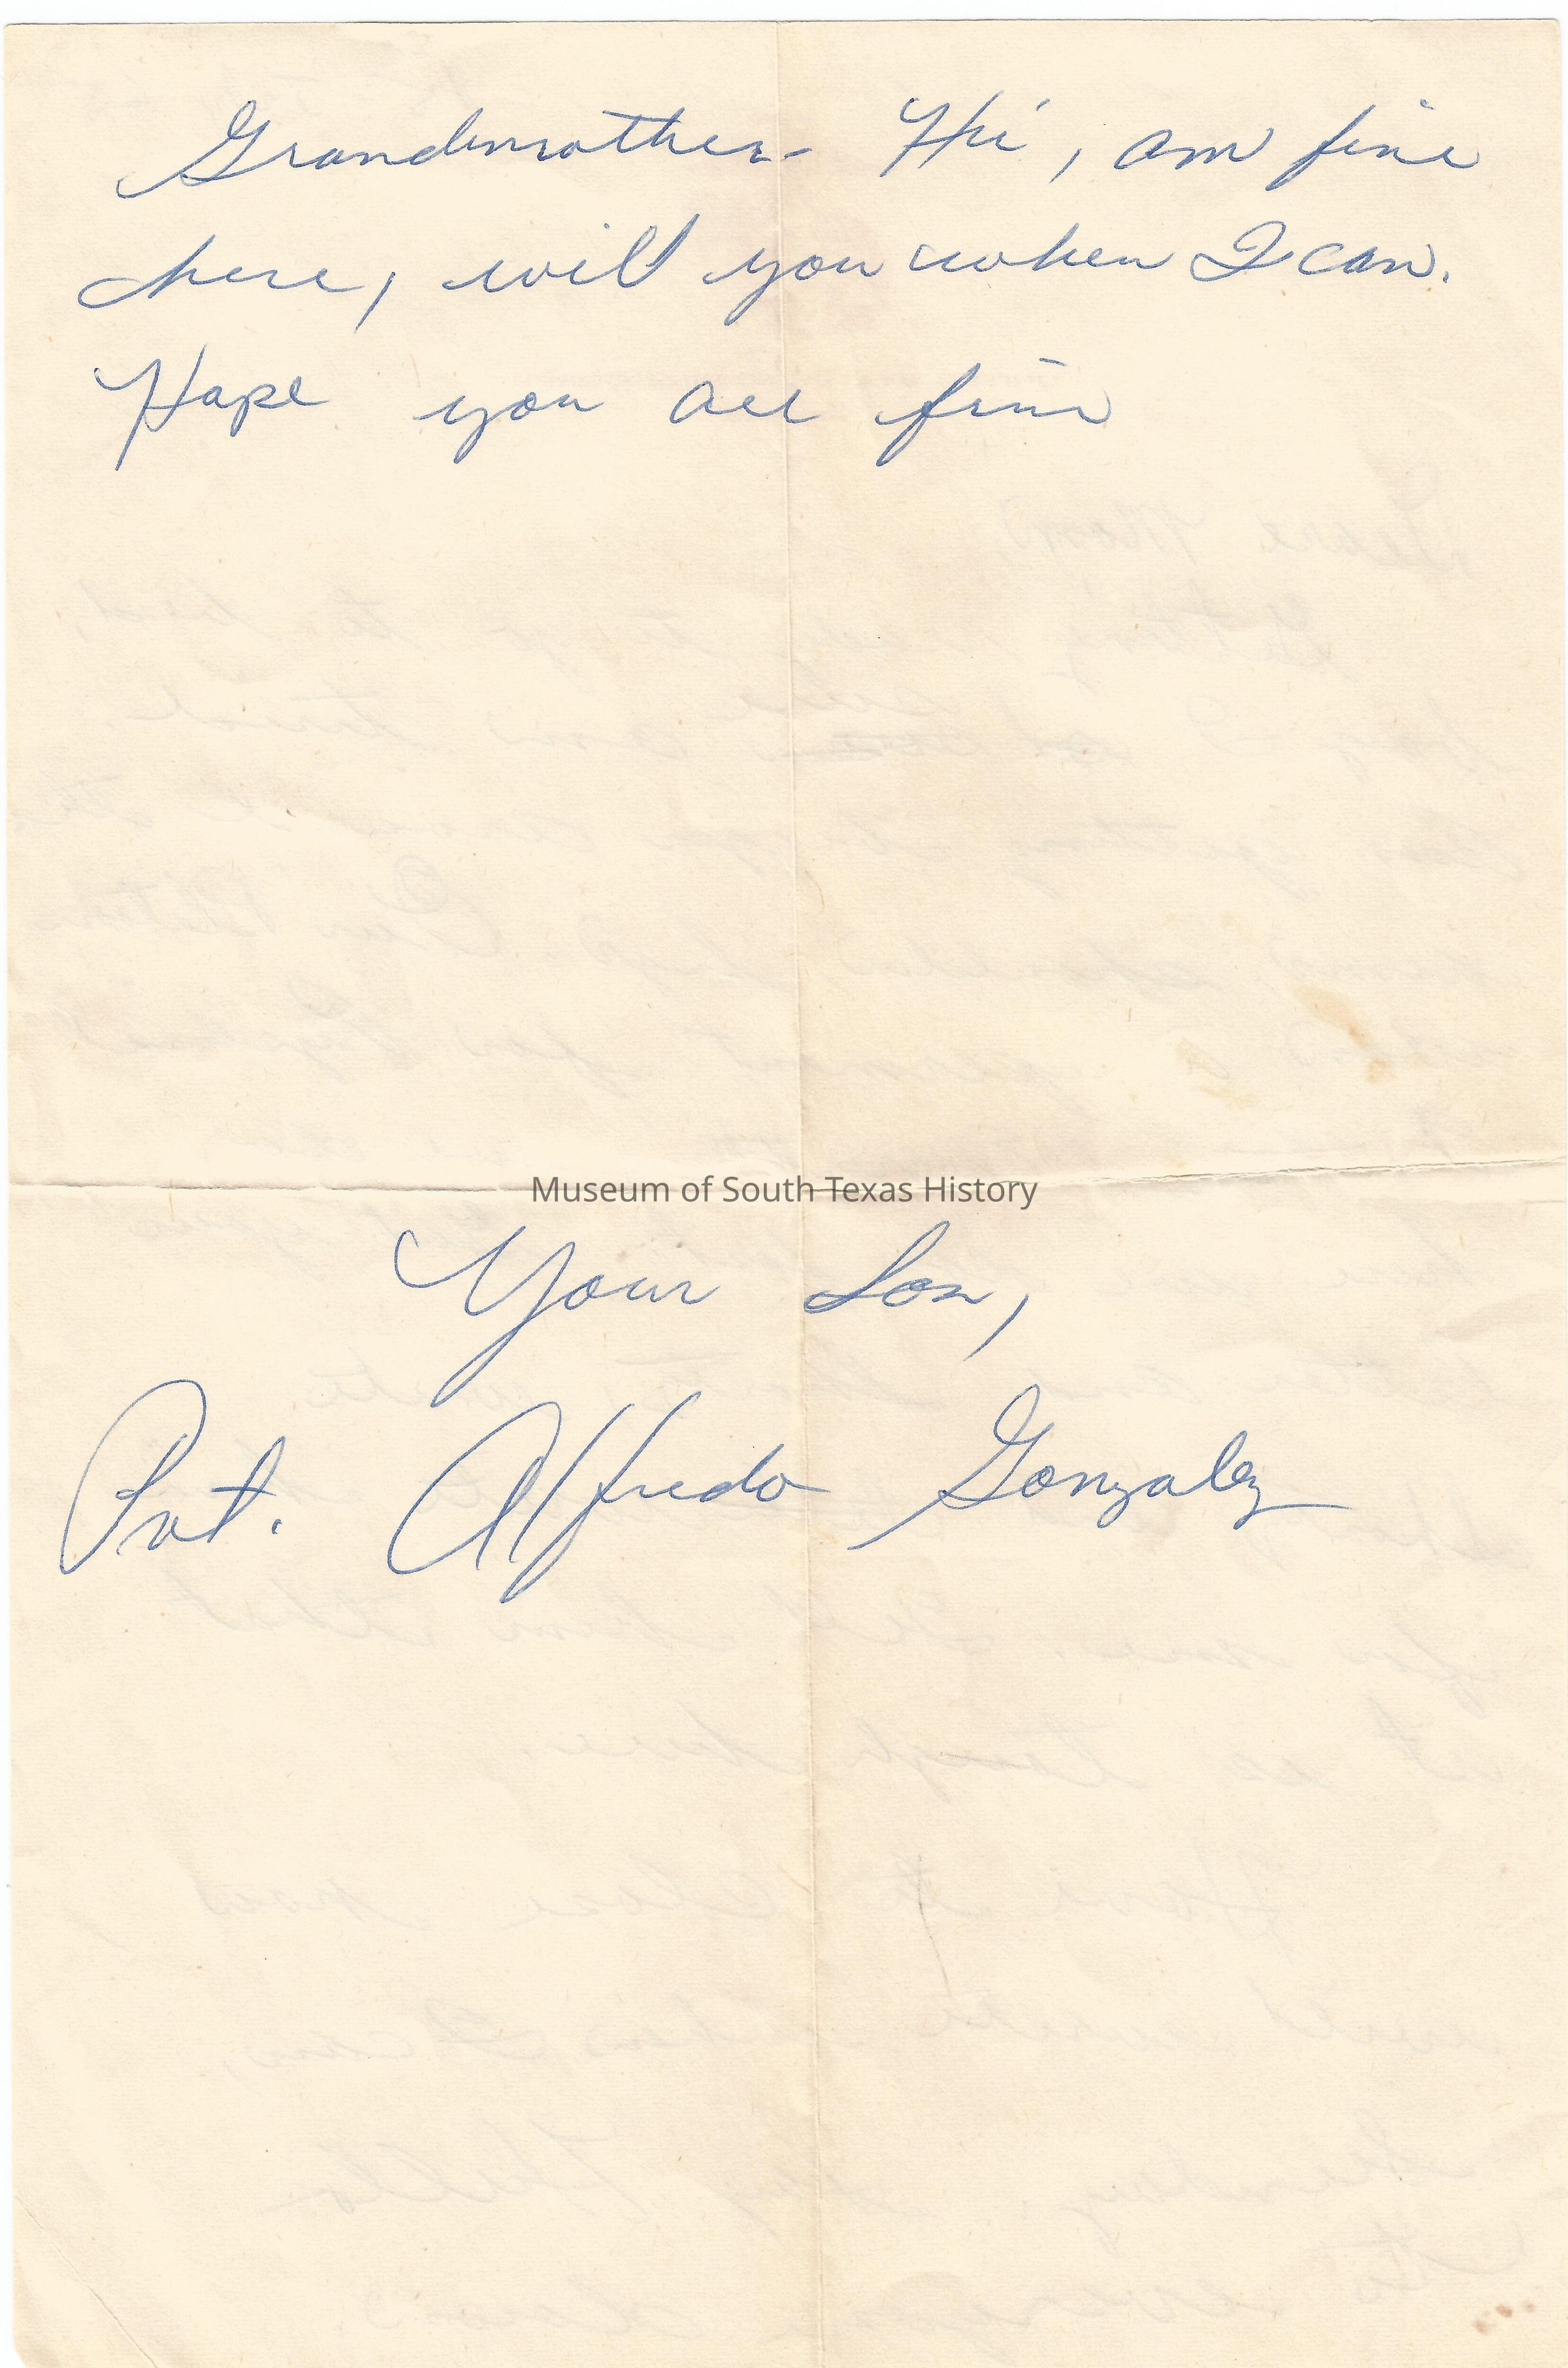 Grandmother- Hi, am fine
here, will you when I can.
Hope you are fine
Museum of South Texas History
Your Son,
Pvt. Alfredo Gonzalez